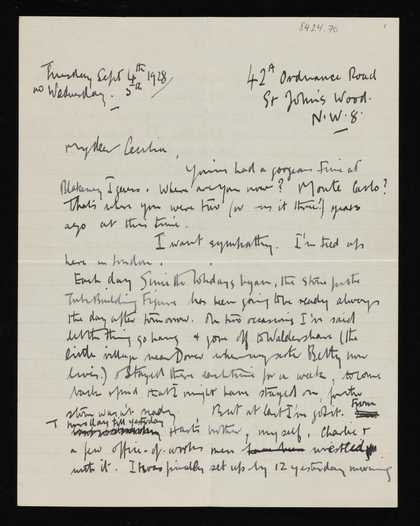 8424.70
Tuesday Sept 4th 1928
no Wednesday. 5th
42A Ordnance Road
St John's Wood.
N.W.8.
My dear Cecilia,
You've had a gorgeous time at
Blakeney I guess. Where are you now? Monte Carlo?
That's where you were two (or is it three?) years
ago at this time.
I want sympathy. I'm tied up
here in London.
Each day since the holidays began, the stone for the
Tube Building Figure has been going to be ready always
the day after tomorrow. On two occasions I've said
let the thing go hang & gone off to Waldershare (the
little village near Dover where my sister Betty now
lives.) & stayed there each time for a week, & come
back & found that I might have stayed on, for the
stone wasn't ready. But at last I'm got it. From
Thursday till yesterday
Hart's brother, myself, Charlie &
a few office-of-works men wrestled
with it. It was finally set up by 12 yesterday morning